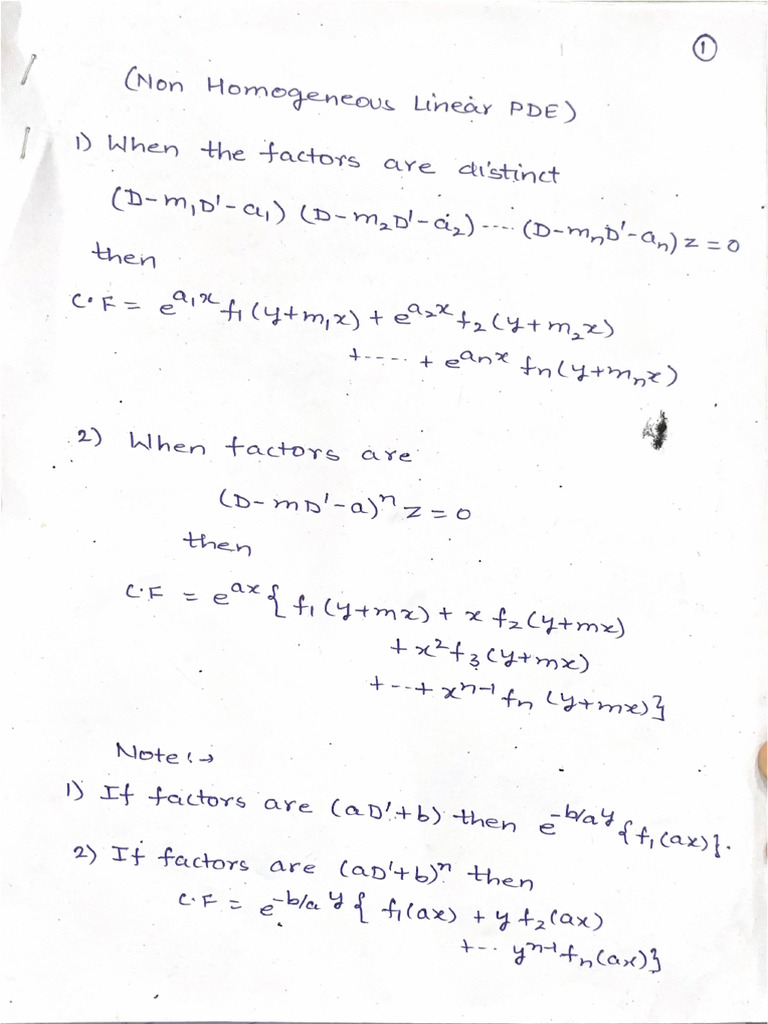 ①
(Non Homogeneous Linear PDE)
1) When the factors are distinct
(D-m₁D'-a₁) (D-m₂D'-a₂) ---- (D-mₙD'-aₙ) z = 0
then
C.F = e^{a₁x} f₁(y+m₁x) + e^{a₂x} f₂(y+m₂x)
+---- + e^{aₙx} fₙ(y+mₙx)
2) When factors are
(D-mD'-a)ⁿ z = 0
then
C.F = e^{ax} { f₁(y+mx) + x f₂(y+mx)
+ x² f₃(y+mx)
+--+ xⁿ⁻¹ fₙ (y+mx)}
Note :→
1) If factors are (aD'+b) then e^{-b/a y} {f₁(ax)}.
2) If factors are (aD'+b)ⁿ then
C.F = e^{-b/a y} { f₁(ax) + y f₂(ax)
+-- yⁿ⁻¹ fₙ(ax)}